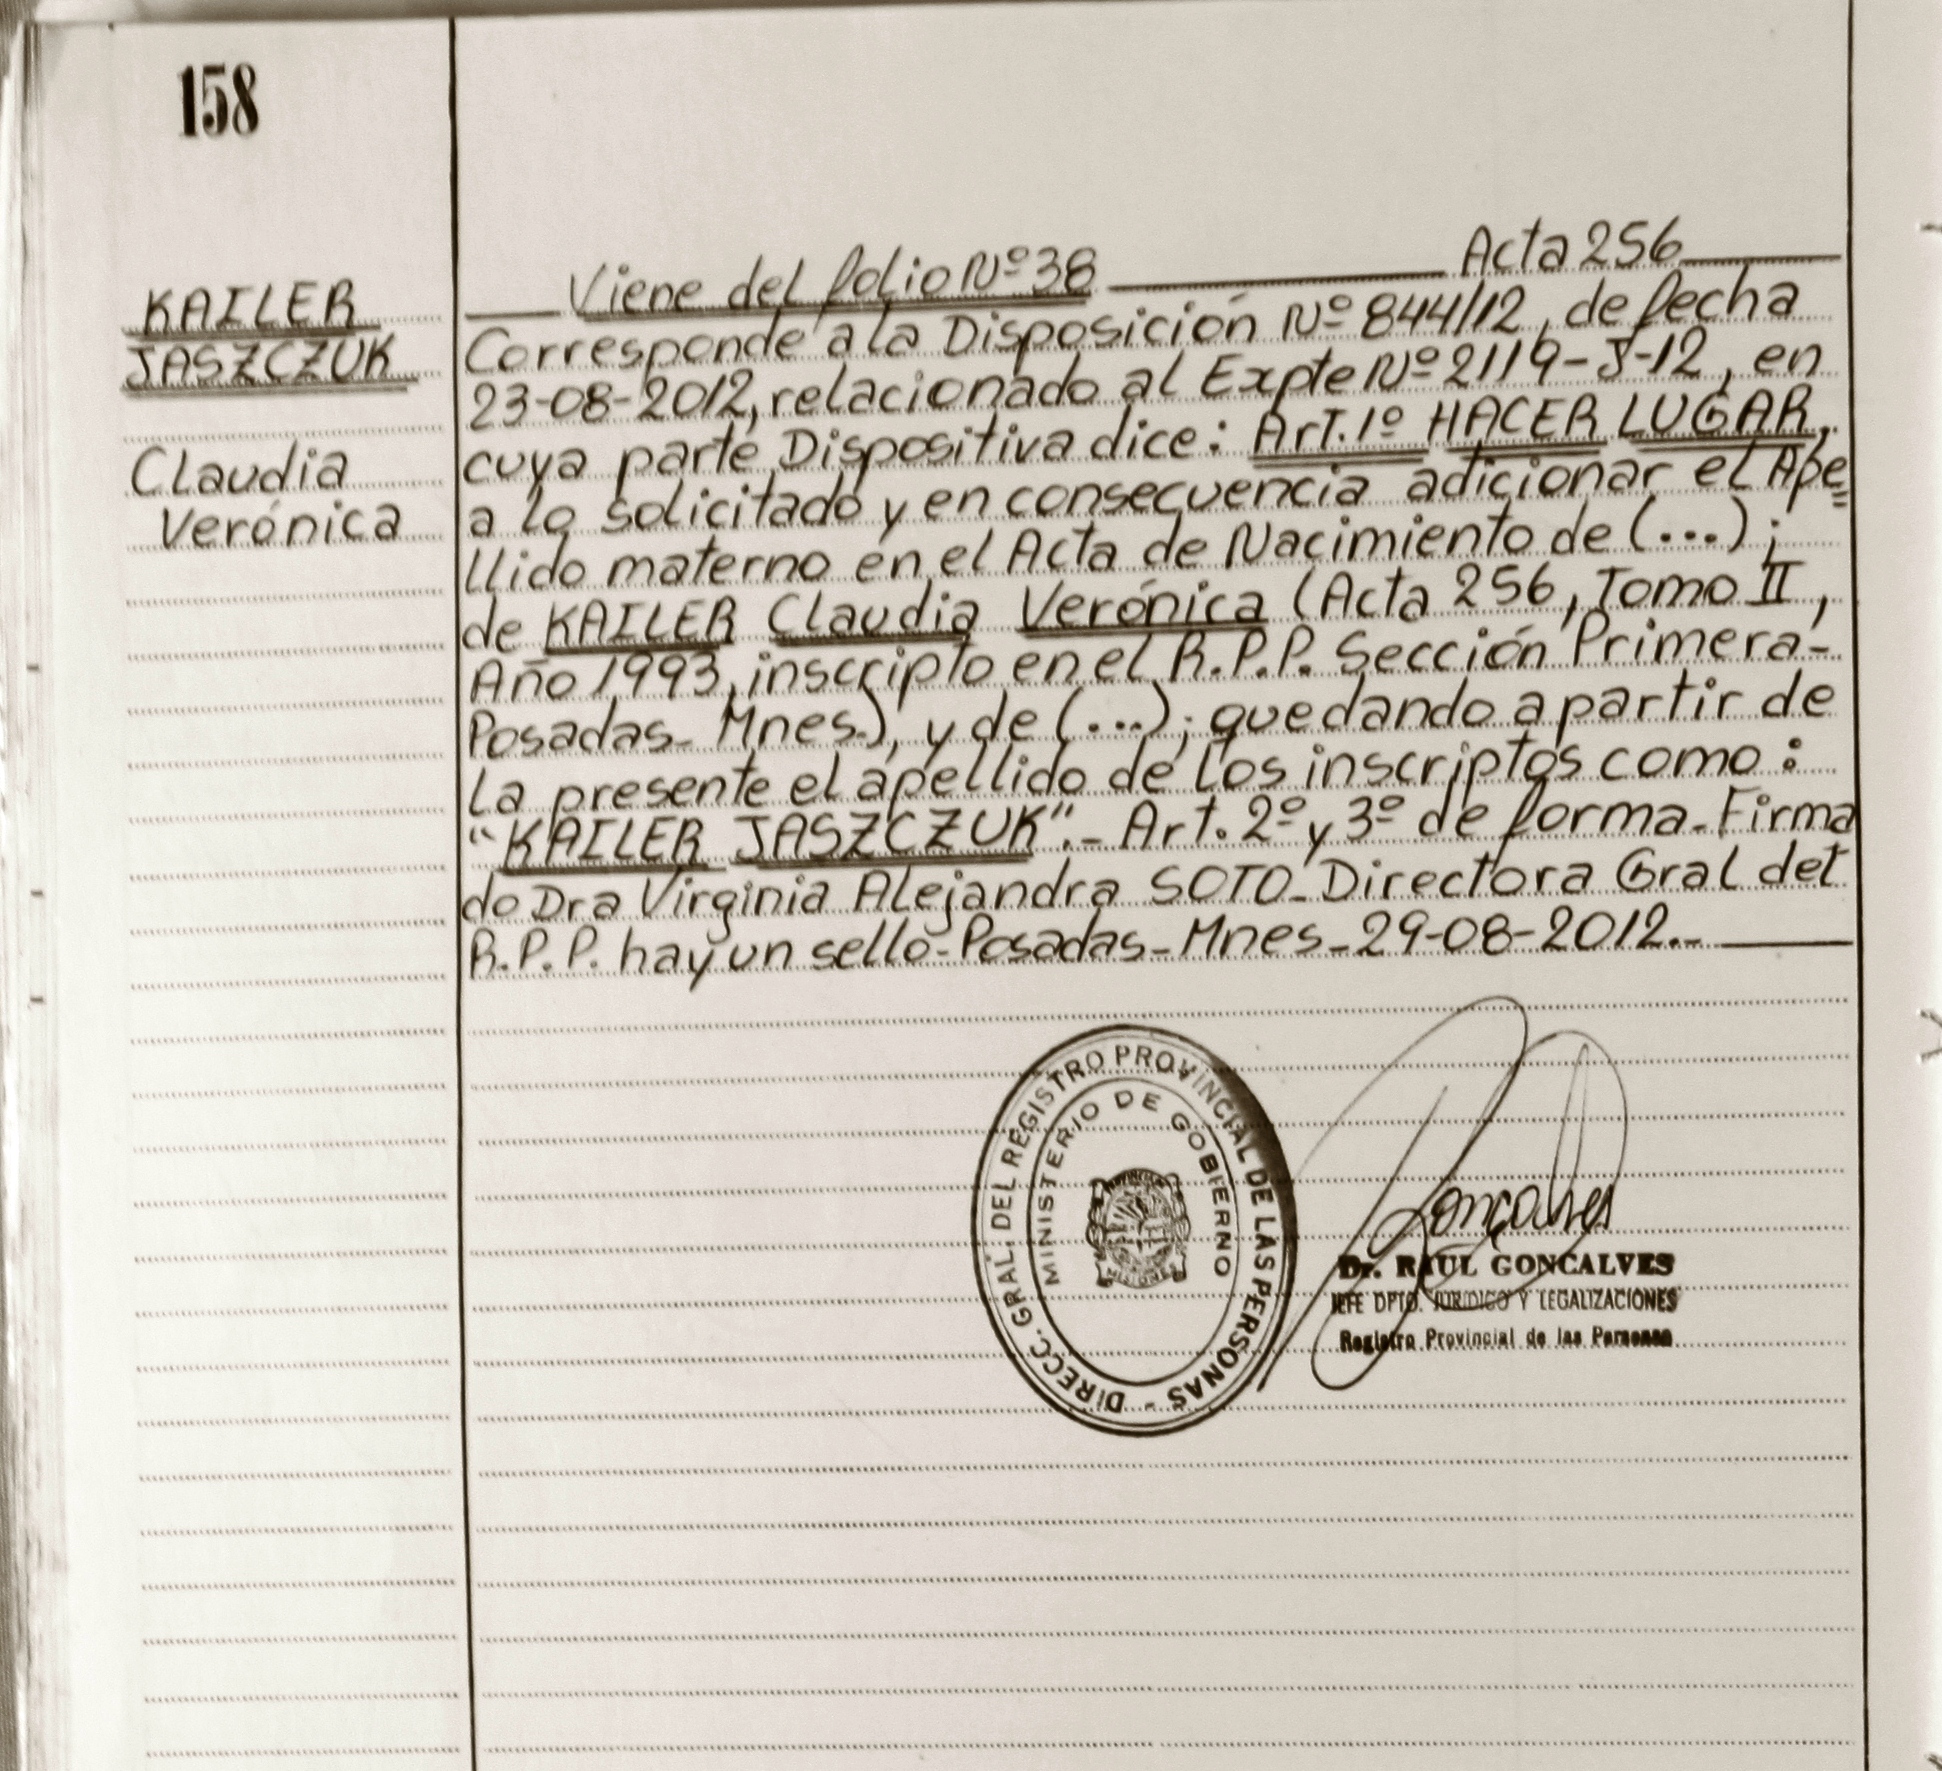 158
KAILER
JASZCZUK
Claudia
Verónica
Viene del folio Nº 38 Acta 256
Corresponde a la Disposición Nº 844/12, de fecha
23-08-2012, relacionado al Expte Nº 2119-J-12, en
cuya parte Dispositiva dice: Art. 1º HACER LUGAR,
a lo solicitado y en consecuencia adicionar el Ape=
llido materno en el Acta de Nacimiento de (...);
de KAILER Claudia Verónica (Acta 256, Tomo II,
Año 1993, inscripto en el R.P.P. Sección Primera-
Posadas- Mnes.), y de (...); quedando a partir de
la presente el apellido de los inscriptos como:
"KAILER JASZCZUK".- Art. 2º y 3º de forma-Firma
do Dra Virginia Alejandra SOTO-Directora Gral del
R.P.P. hay un sello-Posadas-Mnes-29-08-2012.-
DIRECC. GRAL. DEL REGISTRO PROVINCIAL DE LAS PERSONAS -
MINISTERIO DE GOBIERNO
PROVINCIA
MISIONES
Goncalves
Dr. RAUL GONCALVES
JEFE DPTO. JURIDICO Y LEGALIZACIONES
Registro Provincial de las Personas